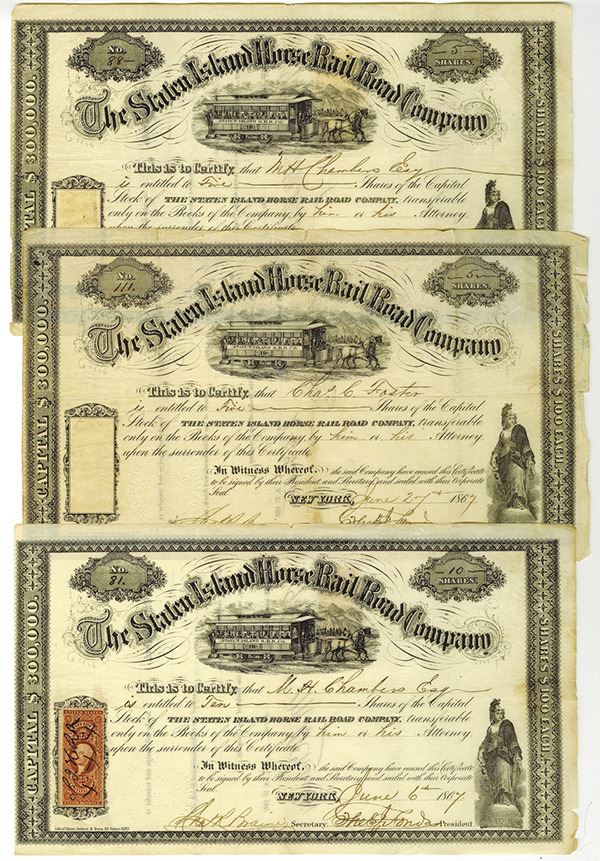 No.
88—
—5—
SHARES.
The Staten Island Horse Rail Road Company
STATEN ISLAND H.R.R. CO.
CAPITAL $300,000.
SHARES $100 EACH.
This is to Certify, that M H Chambers Esq
is entitled to Five Shares of the Capital
Stock of THE STATEN ISLAND HORSE RAIL ROAD COMPANY, transferable
only on the Books of the Company, by him or his Attorney
upon the surrender of this Certificate
No.
111.
—5—
SHARES.
The Staten Island Horse Rail Road Company
STATEN ISLAND H.R.R. CO.
CAPITAL $300,000.
SHARES $100 EACH.
This is to Certify that Chas. C. Foster
is entitled to Five Shares of the Capital
Stock of THE STATEN ISLAND HORSE RAIL ROAD COMPANY, transferable
only on the Books of the Company, by him or his Attorney
upon the surrender of this Certificate
In Witness Whereof, the said Company have caused this Certificate
to be signed by their President and Secretary, and sealed with their Corporate
Seal.
NEW YORK, June 27th 1867
No.
81.
—10—
SHARES.
The Staten Island Horse Rail Road Company
STATEN ISLAND H.R.R. CO.
CAPITAL $300,000.
SHARES $100 EACH.
This is to Certify, that M. H. Chambers Esq
is entitled to Ten Shares of the Capital
Stock of THE STATEN ISLAND HORSE RAIL ROAD COMPANY, transferable
only on the Books of the Company, by him or his Attorney
upon the surrender of this Certificate
In Witness Whereof, the said Company have caused this Certificate
to be signed by their President and Secretary, and sealed with their Corporate
Seal.
NEW YORK, June 6th 1867
Secretary. President